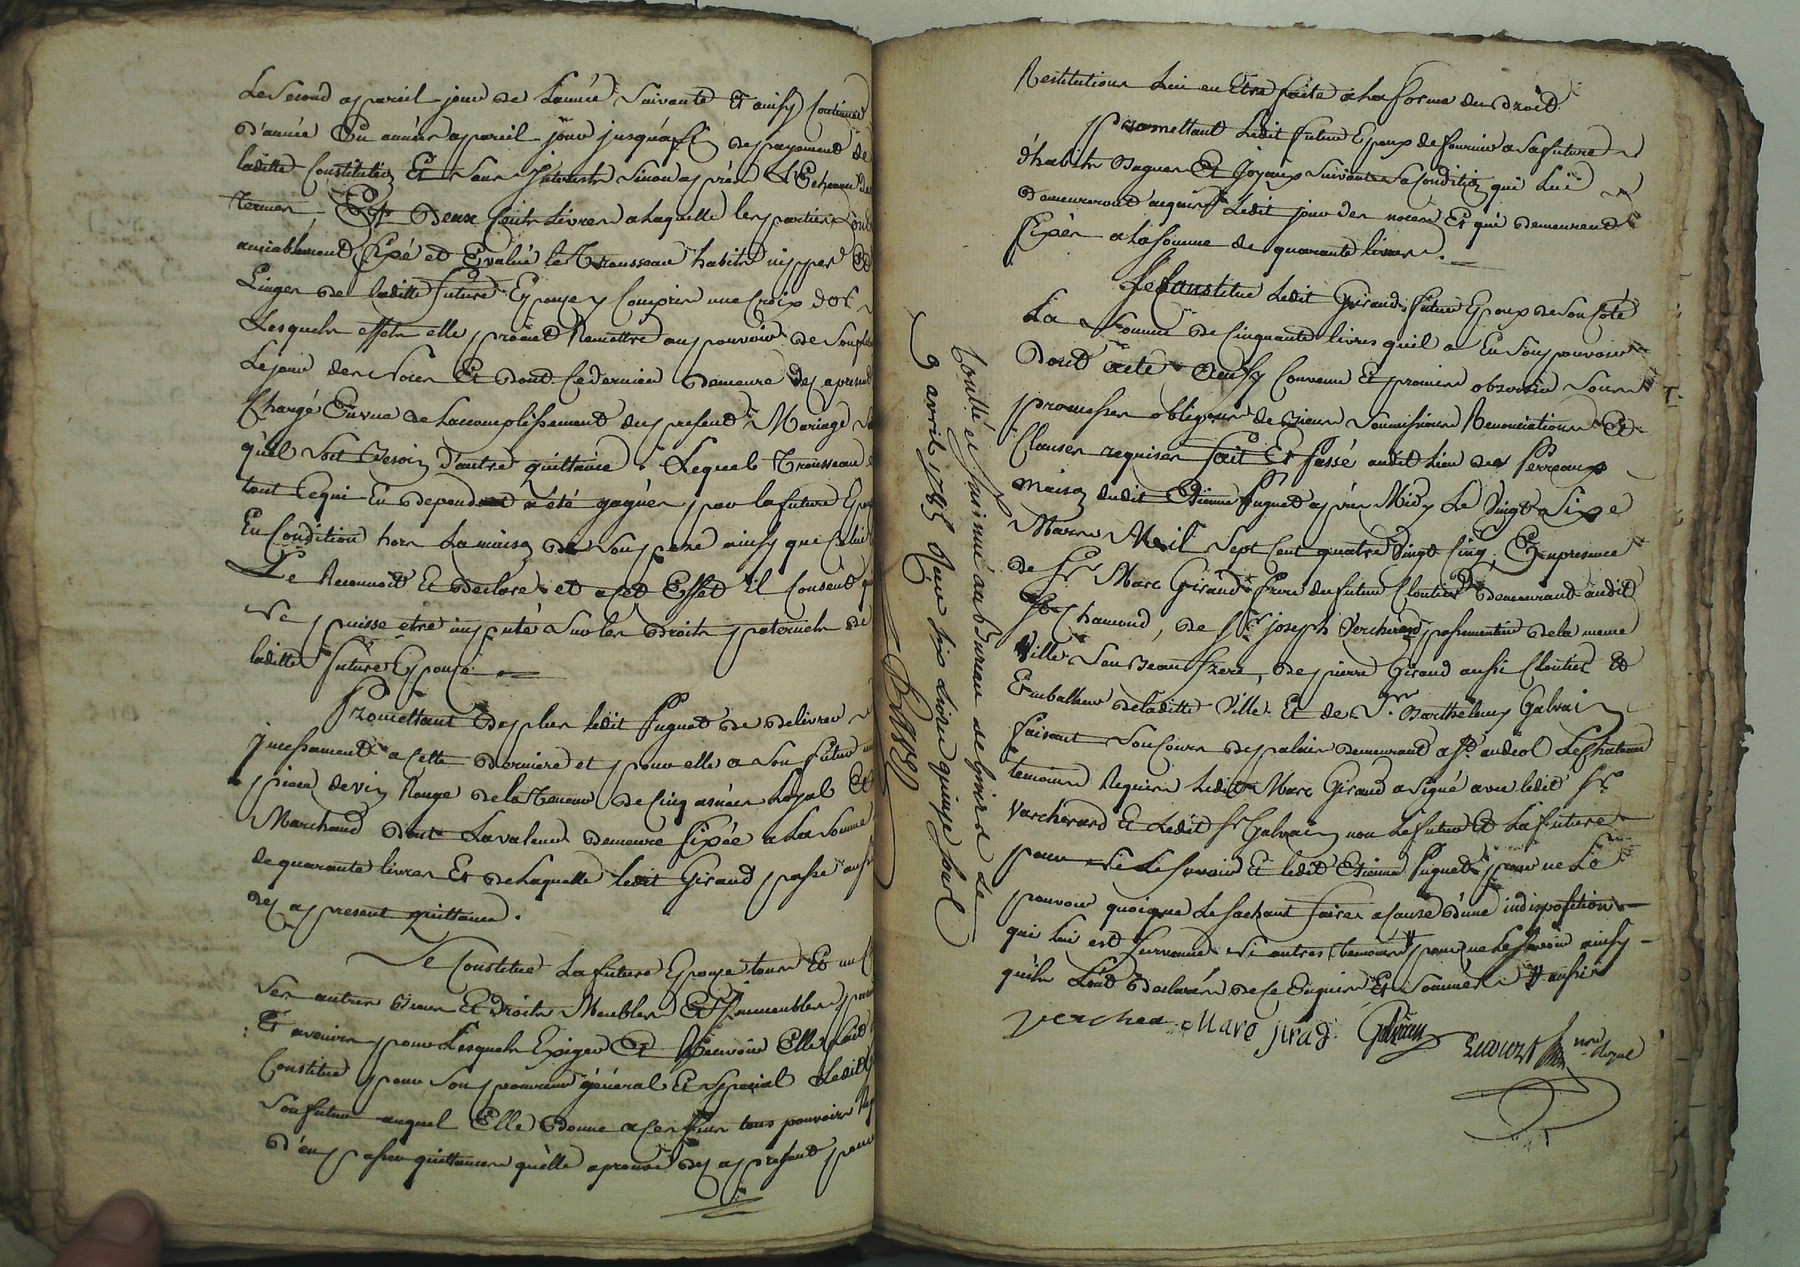 Le second a pareil jour de L'année Suivante Et ainsy Continuer
D'année En année a pareil jour jusquáfin de payement de
laditte Constitution Et Sans Interests Sinon après L'Echeance des
Termes, Et Deux Cents Livres a laquelle les parties ont
amiablement fixé et Evalué le Trousseau habits nippes Et
Linges de laditte future Epouse y Compris une Croix d'or
Lesquels effets elle promet Remettre au pouvoir de Son futur
Le jour des Noces Et dont Ce dernier Demeure dez apresent
Chargé En vue de Laccomplissement du present Mariage sans
qu'il Soit Besoin d'autre quittance. Lequel Trousseau et
tout Ce qui En depend a été gagnés par la future Epouse
En Condition hors La maison de Son pere ainsy que Celui
Le Reconnoit Et Declare et a Cet Effet il Consent qu
Ne puisse etre imputé Sur les Droits paternels de
laditte future Epouse.
Promettant De plus ledit Puguet de Delivrer
Incessament a Cette Derniere et pour elle a Son futur une
piece de vin Rouge de la Teneur de Cinq asnées Loyal Et
Marchand dont La valeur demeure fixée a La Somme
de quarante livres Et de laquelle ledit Giraud passe aussi
dez apresent quittance.
Se Constitue La future Epouse tous Et un Ch
Ses autres Biens Et Droits Meubles Et Immeubles pres
Et avenirs pour Lesquels Exiger Et Recevoir Elle fait
Constitue pour Son procureur général Et Special Ledit
Son futur auquel Elle Donne a Ces fins tous pouvoirs Req
D'en passer quittances qu'elle aprouve dez apresent pour
Controllé et Insinué au Bureau de Gnird Le
9 avril 1785 Reçu Six Livres quinze Sols
Restitutions Lui en Etre faite a la forme du Droit
Promettant Ledit futur Epoux de fournir a Sa future
d'habits Bagues Et Joyaux Suivant Sa Condition qui Lui
Demeureront acquis Ledit jour des noces Et qui demeurent
fixés a la Somme de quarante livres.
Se Constitue Ledit Giraud futur Epoux de Son Coté
La Somme de Cinquante livres quil a En Son pouvoir
Dont a eté Ainsy Convenu Et promis observer Sous
promesses obligations de Biens Soumissions Renonciations Et
Clauses requises fait Et Passé audit Lieu des Perreaux
maison dudit Etienne Puguet apres Midy Le Vingt Six
Mars Mil Sept Cent quatre Vingt Cinq, En presence
de Sr Marc Giraud frere du futur Cloutier Demeurant audit
St Chamond, de Sr joseph Vercherand passementier de la meme
Ville Son Beau frere, de pierre Giraud aussi Cloutier Et
Emballeur de laditte Ville Et de Sr Barthelemy Galvain
faisant Son Cours de palais demeurant a St andeol Le Chateau
temoins Requis Ledit Marc Giraud a Signé avec ledit Sr
Varcherand Et Ledit Sr Galvain non Le futur Et La future
pour Ne Le Savoir Et ledit Etienne Puguet pour ne Le
pouvoir quoique Le Sachant faire a Cause d'une indisposition
qui Lui est Survenue Ni autres temoins pour ne Le Savoir ainsy
qu'ils L'ont Declarés de Ce Enquis Et Sommés # aussi
Vercher Marc jirad Galvain nre Royal